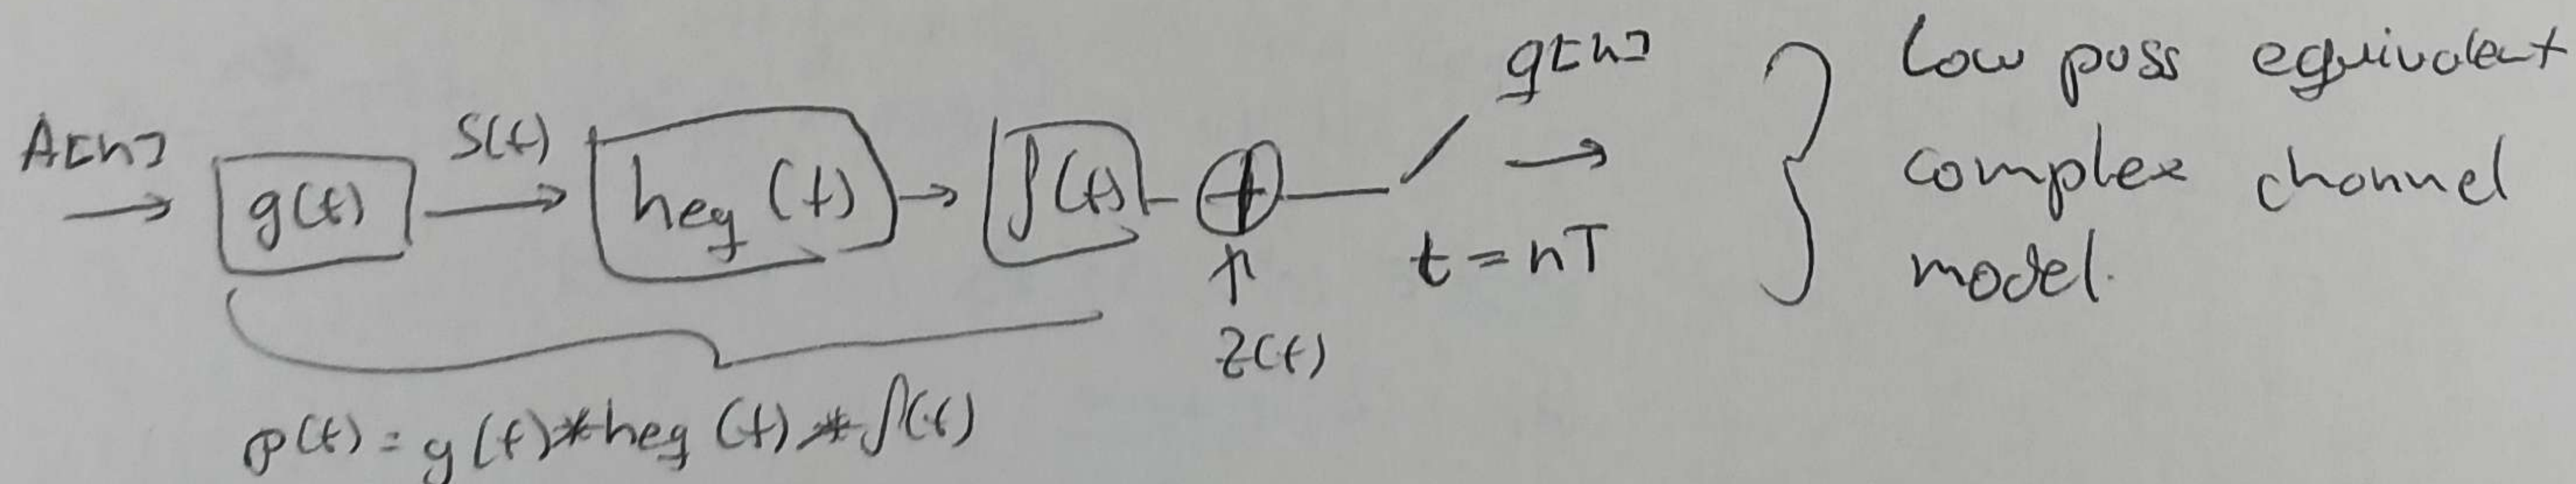 A[n] g(t) s(t) heq(t) f(t) q[n]
t=nT
z(t)
p(t) = g(t)*heq(t)*f(t)
Low pass equivalent
complex channel
model.